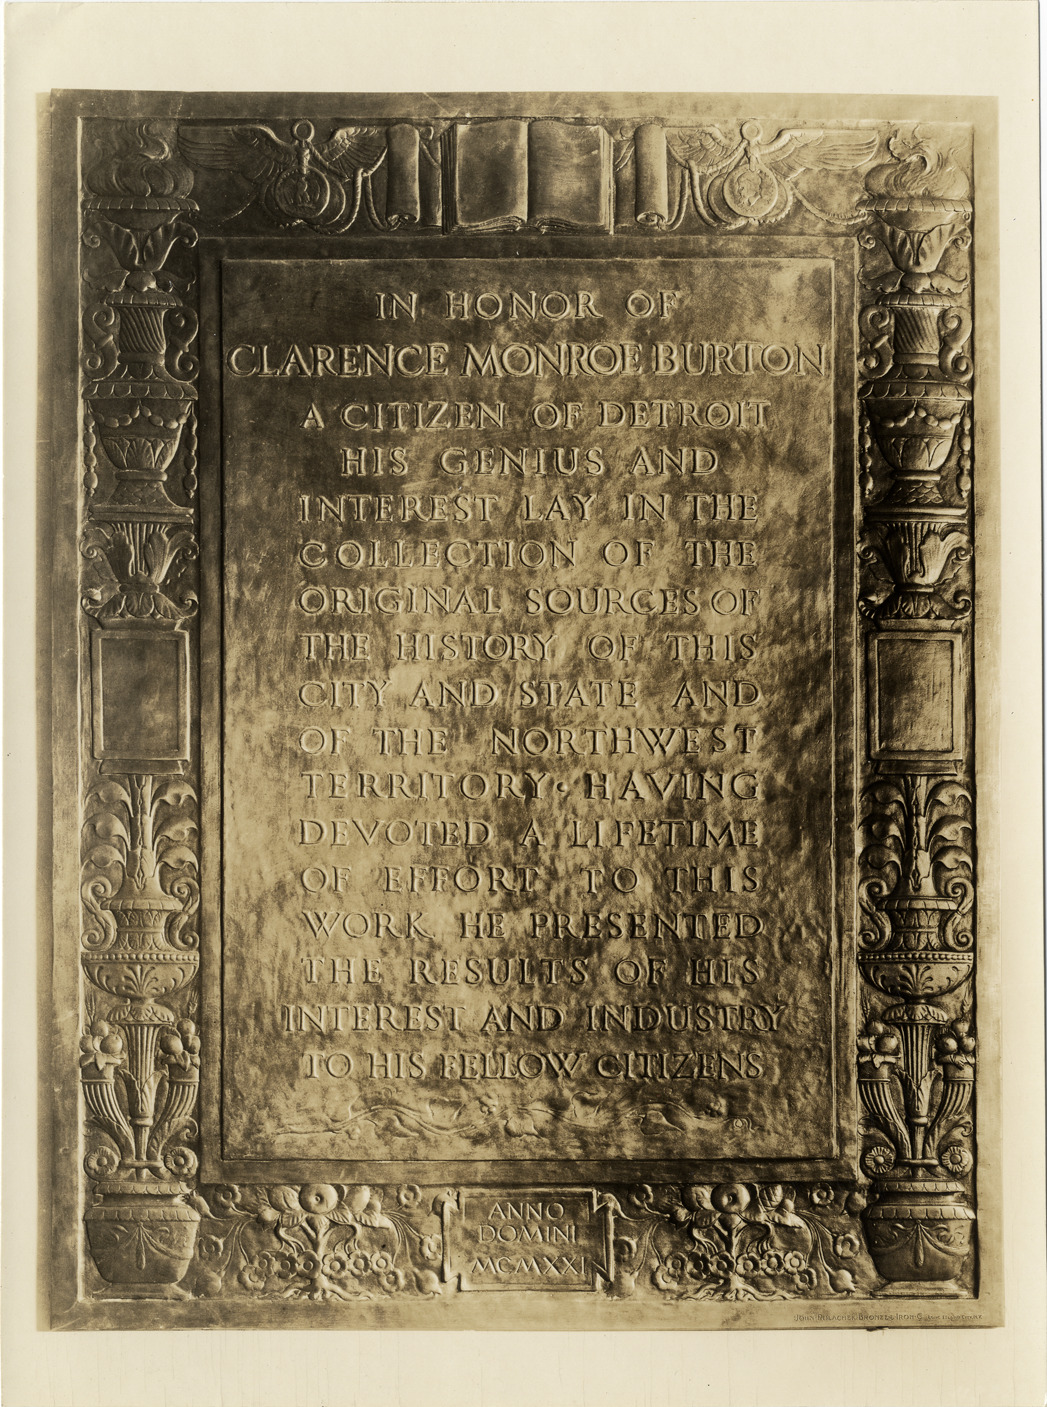 IN HONOR OF
CLARENCE MONROE BURTON
A CITIZEN OF DETROIT
HIS GENIUS AND
INTEREST LAY IN THE
COLLECTION OF THE
ORIGINAL SOURCES OF
THE HISTORY OF THIS
CITY AND STATE AND
OF THE NORTHWEST
TERRITORY · HAVING
DEVOTED A LIFETIME
OF EFFORT TO THIS
WORK HE PRESENTED
THE RESULTS OF HIS
INTEREST AND INDUSTRY
TO HIS FELLOW CITIZENS
ANNO
DOMINI
MCMXXI
JOHN POLACHEK BRONZE & IRON C